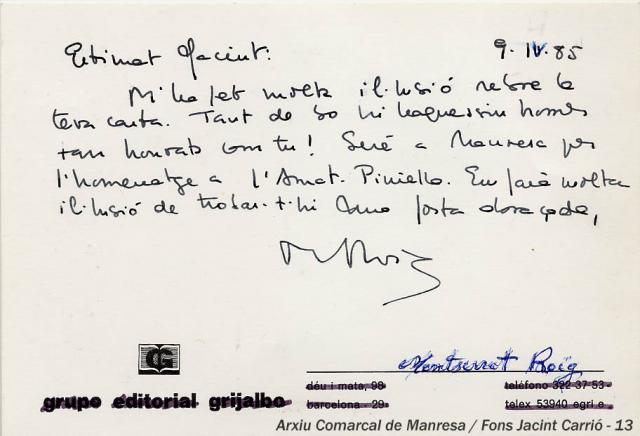 Estimat Jacint:
9. IV. 85
M'ha fet molta il·lusió rebre la
teva carta. Tant de bo hi haguessin homes
tan honrats com tu! Seré a Manresa per
l'homenatge a l'Amat-Piniella. Em farà molta
il·lusió de trobar-t-hi Una forta abraçada,
M Roig
Montserrat Roig
G
déu i mata, 98
teléfono 322 37 53 -
grupo editorial grijalbo
barcelona - 29
telex 53940 egri e
Arxiu Comarcal de Manresa / Fons Jacint Carrió - 13